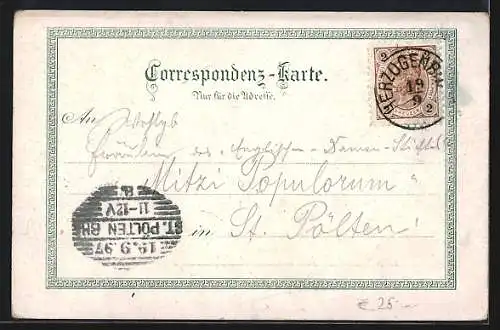 Correspondenz-Karte.
Nur für die Adresse.
2
2
HERZOGENB
19
9
An Wohlgb
Fräulein des Englischen-Damen-Stiftes
"Mitzi Populorum"
in St. Pölten
ST. PÖLTEN BH
19.9.97
11-12V
* 8 *
€ 25.-